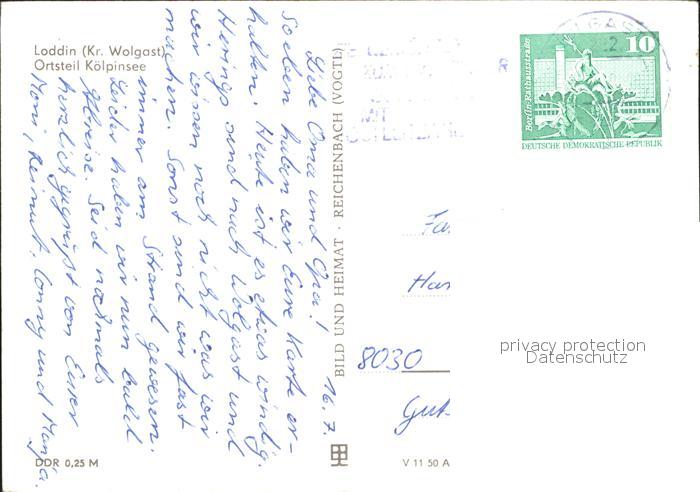 Loddin (Kr. Wolgast)
Ortsteil Kölpinsee
16. 7.
Liebe Oma und Opa!
Soeben haben wir Eure Karte er-
halten. Heute ist es etwas windig.
Herings sind nach Wolgast und
wir wissen noch nicht was wir
machen. Sonst sind wir fast
immer am Strand gewesen.
Leider haben wir nun bald
Abreise. Seid nochmals
herzlich gegrüßt von Euren
Moni, Reinart, Conny und Manja.
DDR 0,25 M
BILD UND HEIMAT · REICHENBACH (VOGTL)
V 11 50 A
MIT
10
Berlin-Rathausstraße
DEUTSCHE DEMOKRATISCHE REPUBLIK
Fa
Han
8030
Gut
privacy protection
Datenschutz